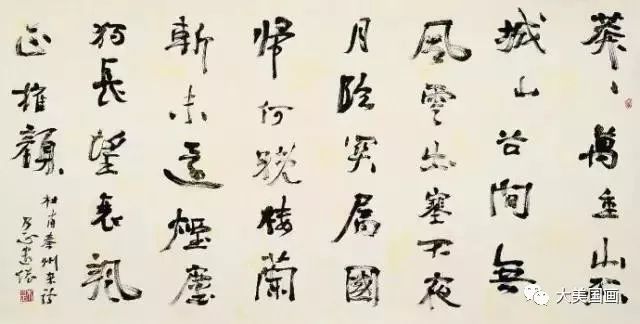 莽〻萬重山孤
城山谷間無
風雲出塞不夜
月臨關屬國
歸何晚樓蘭
斬未還煙塵
獨長望衰颯
正摧顏
杜甫秦州雜詩
大美国画